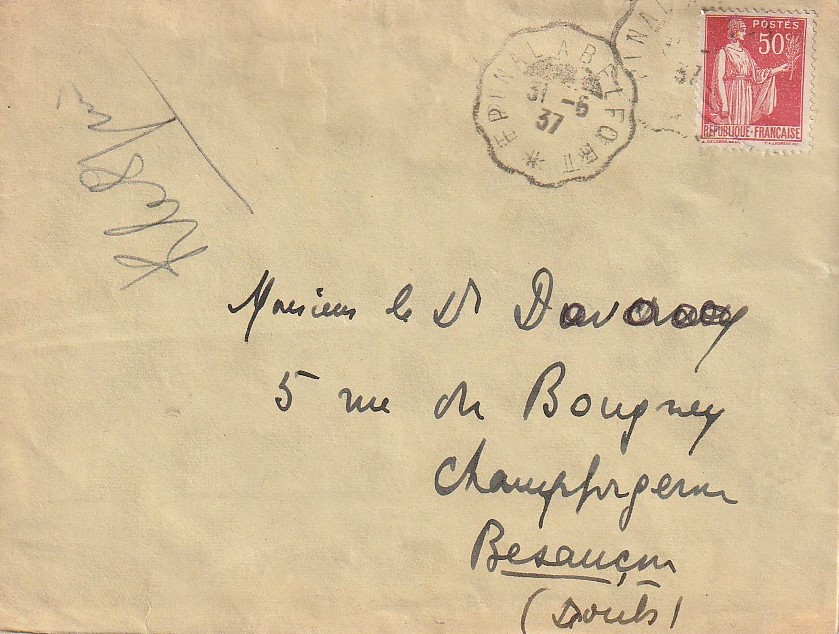 EPINAL A BELFORT
31 -6
37
INAL
37
POSTES
50c
REPUBLIQUE-FRANÇAISE
Monsieur le Dr
5 rue du Bougney
Champforgeron
Besançon
(Doubs)